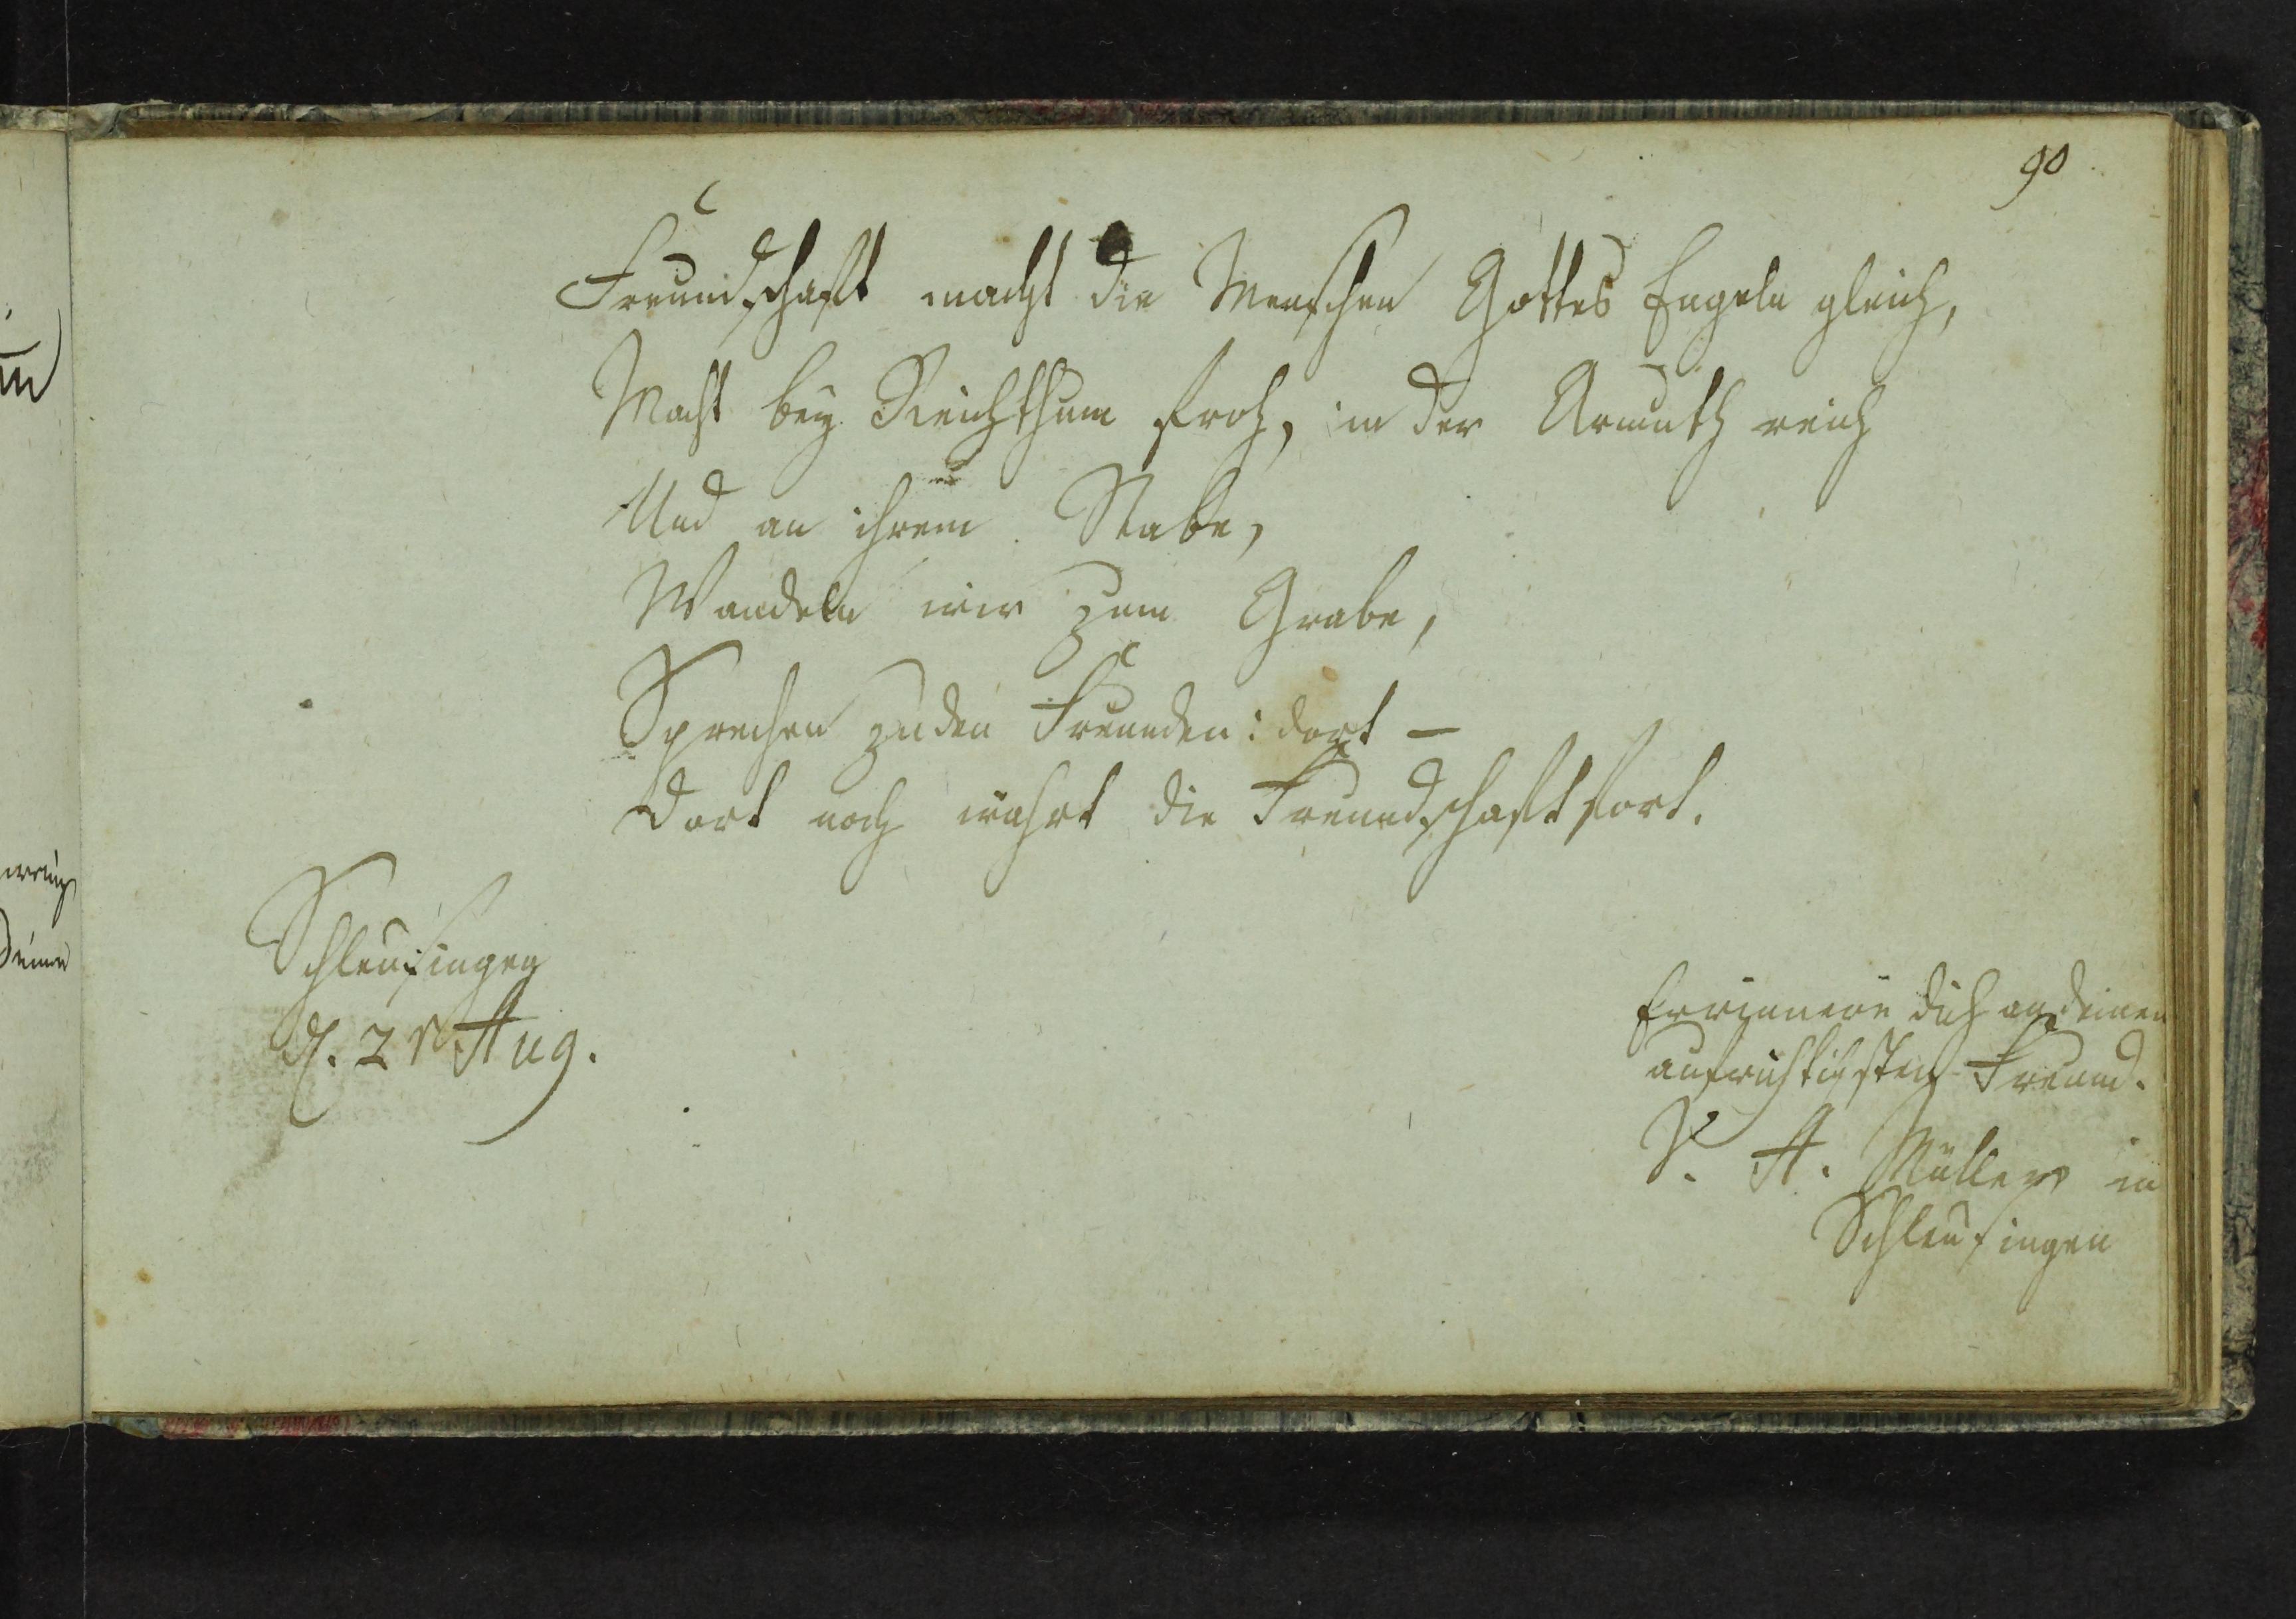 90
Freundschaft macht die Menschen Gottes Engeln gleich,
Macht bey Reichthum froh, in der Armuth reich
Und an ihrem Stabe,
Wandeln wir zum Grabe,
Sprechen zu den Freunden: dort –
dort noch währt die Freundschaft fort.
Schleusingen
d. 21 Aug.
Errinnere dich an deinen
aufrichtigsten Freund.
A. Müller in
Schleusingen